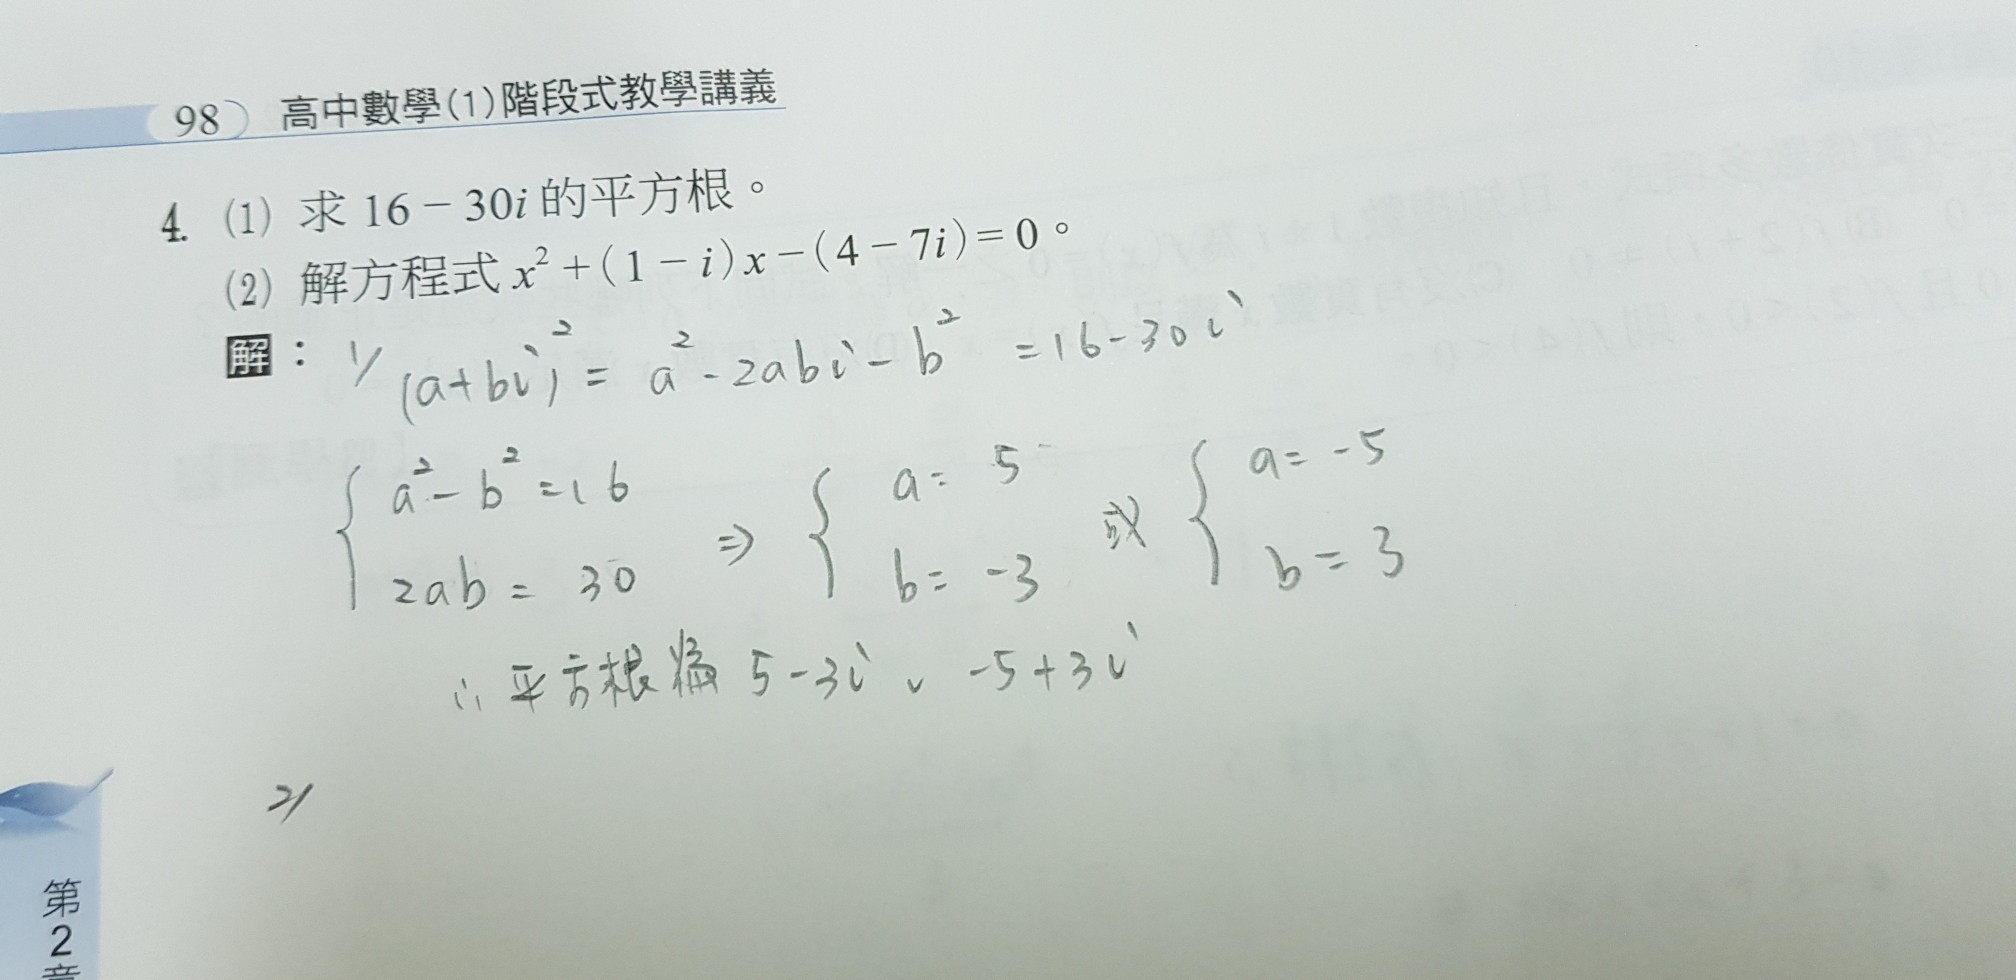 98 高中數學(1)階段式教學講義
4. (1) 求 16 − 30i 的平方根。
(2) 解方程式 x² + (1 − i)x − (4 − 7i) = 0。
解：1/ (a+bi)² = a² - 2abi - b² = 16 - 30i
{ a² - b² = 16 ⇒ { a = 5 或 { a = -5
2ab = 30 b = -3 b = 3
∴ 平方根為 5-3i、-5+3i
2/
第2章